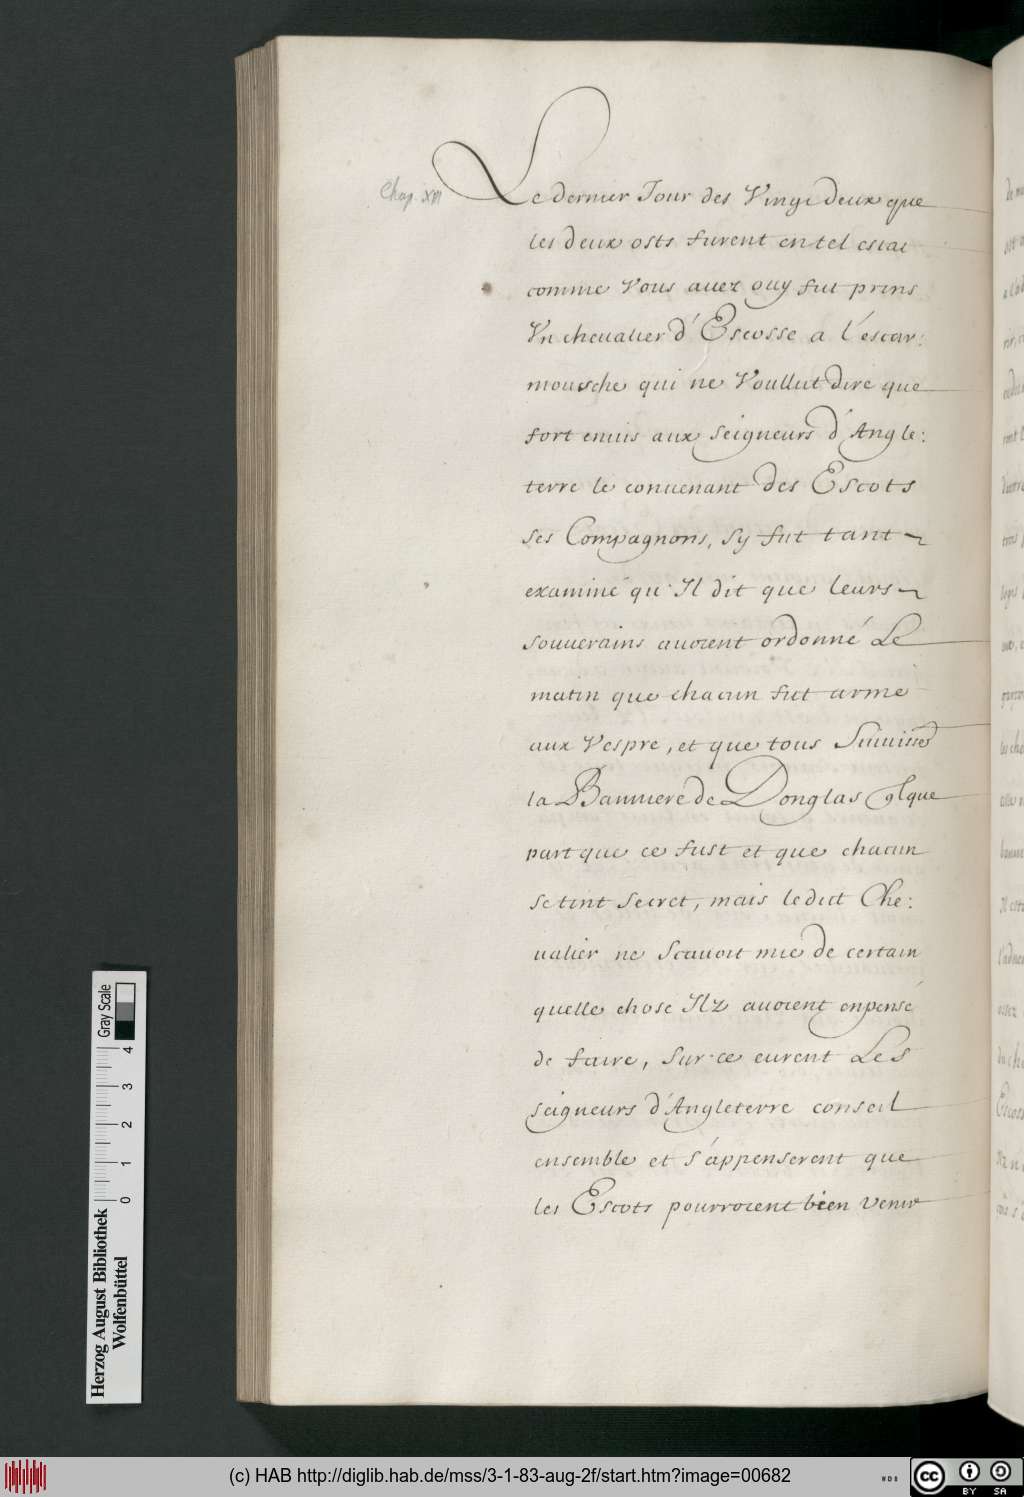 Chap. XVI
Le dernier Jour des Vingt deux que
les deux osts furent en tel estat
comme Vous auez ouy fut prins
Vn cheualier d'Escosse a l'escar:
mousche qui ne Voullut dire que
fort enuis aux seigneurs d'Angle:
terre le conuenant des Escots
ses Compagnons, sy fut tant
examiné qu'Il dit que leurs
souuerains auoient ordonné Le
matin que chacun fut armé
aux Vespre, et que tous Suiuissẽt
la Banniere de Donglas qlque
part que ce fust et que chacun
se tint secret, mais ledict Che:
ualier ne Scauoit mie de certain
quelle chose Ilz auoient enpensé
de faire, Sur ce eurent Les
seigneurs d'Angleterre conseil
ensemble et s'appenserent que
les Escots pourroient bien venir
Herzog August Bibliothek
Wolfenbüttel
0 1 2 3 4
Gray Scale
(c) HAB http://diglib.hab.de/mss/3-1-83-aug-2f/start.htm?image=00682
WDB
cc BY SA